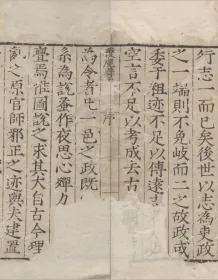 行志一而已矣後世以志為吏政或
之一端則不免岐而二之故政或
委于徂迹不足以傳遠志
空言不足以考成去古
為令者屯一邑之政既
条為說蚤作夜思心殫力
亹焉惟圖說之求其大自古今理
亂之原官師邪正之迹與夫建置